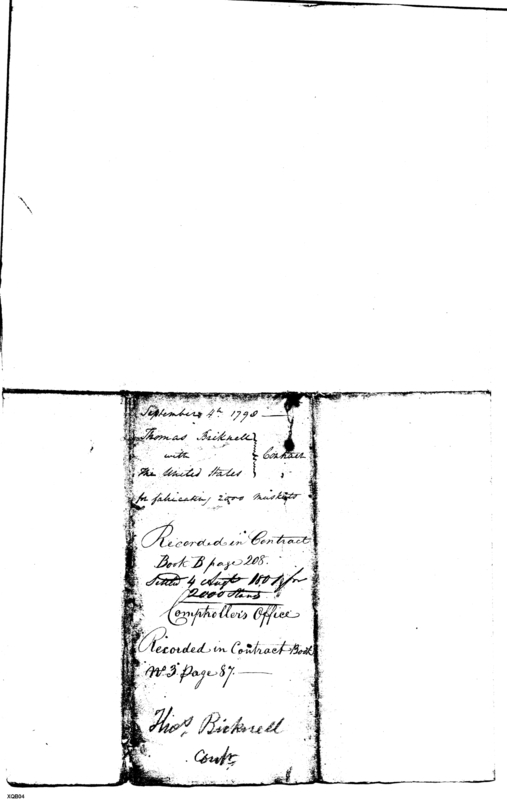 September 4th 1798
Thomas Bicknell
with
The United States
Contract
for fabricating 2000 muskets
Recorded in Contract
Book B page 208.
Settled 4 Augt for
2000 Stand
Comptroller's Office
Recorded in Contract Book
No 3 page 87.
Thos Bicknell
Contr
XQB04